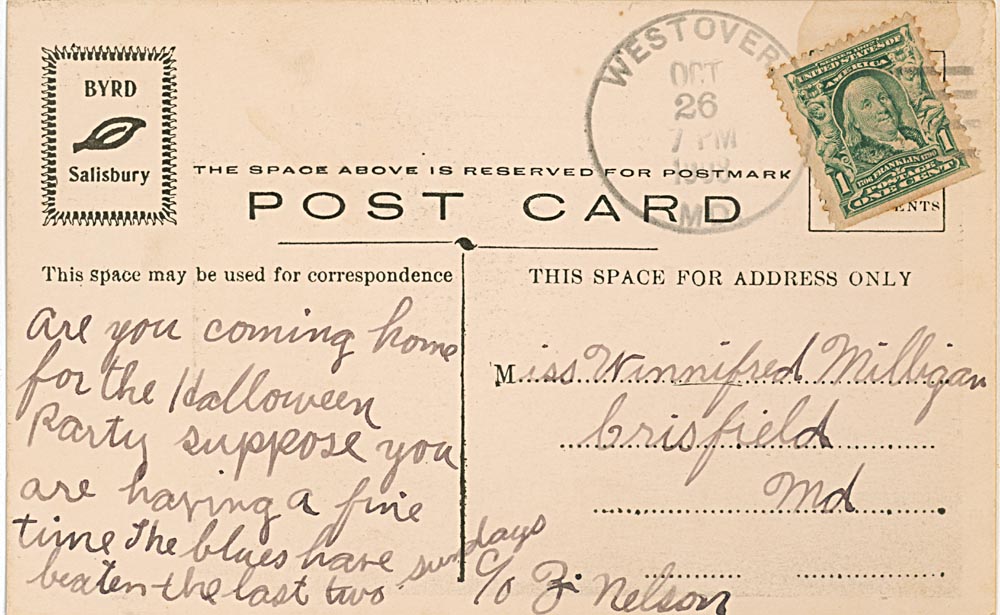 BYRD
Salisbury
WESTOVER
OCT
26
7 PM
MD.
UNITED STATES OF
AMERICA
FRANKLIN
POSTAGE
ONE CENT
1 1
ENTS
THE SPACE ABOVE IS RESERVED FOR POSTMARK
POST CARD
This space may be used for correspondence
THIS SPACE FOR ADDRESS ONLY
Are you coming home
for the Halloween
Party suppose you
are having a fine
time The blues have
beaten the last two sundays
Miss Winnifred Milligan
Crisfield
Md
c/o Z. Nelson